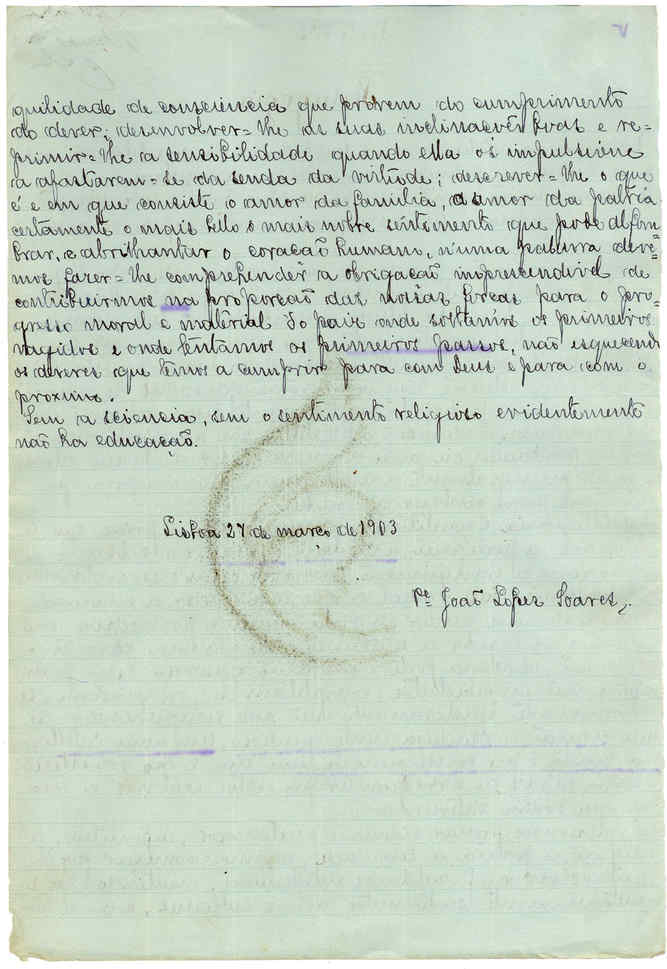 quilidade de consciencia que provem do cumprimento
do dever; desenvolver-lhe as suas inclinações boas e re-
primir-lhe a sensibilidade quando ella os impulsione
a afastarem-se da senda da virtude; descrever-lhe o que
é e em que consiste o amor da familia, o amor da patria
certamente o mais bello o mais nobre sentimento que pode
brar, e abrilhantar o coração humano, n'uma palavra deve-
mos fazer-lhe comprehender a obrigação imprescendivel de
contribuirmos na proporção das nossas forças para o pro-
gresso moral e material do pais onde soltamos os primeiros
vagidos e onde tentamos os primeiros passos, não esquecendo
os deveres que temos a cumprir para com Deus e para com o
proximo.
Sem a sciencia, sem o sentimento religioso evidentemente
não ha educação.
Lisboa 27 de março de 1903
Pe João Lopes Soares